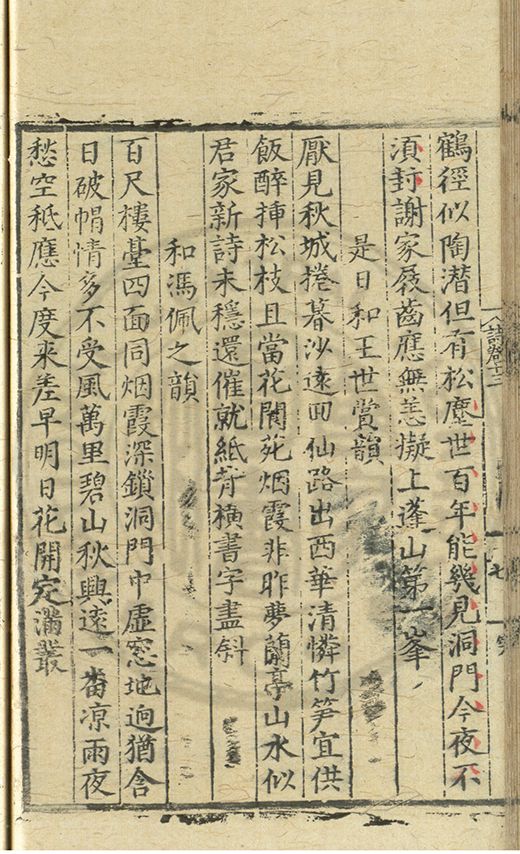 鶴徑似陶潛但有松塵世百年能幾見洞門今夜不
湏封謝家屐齒應無恙擬上蓬山第一峯
是日和王世賞韻
厭見秋城捲暮沙遠回仙路出西華清憐竹笋宜供
飯醉揷松枝且當花閬苑烟霞非昨夢蘭亭山水似
君家新詩未穩還催就紙背橫書字盡斜
和馮佩之韻
百尺樓臺四面同烟霞深鎖洞門中虛窓地逈猶含
日破帽情多不受風萬里碧山秋興遠一番凉雨夜
愁空秪應今度來差早明日花開定滿叢